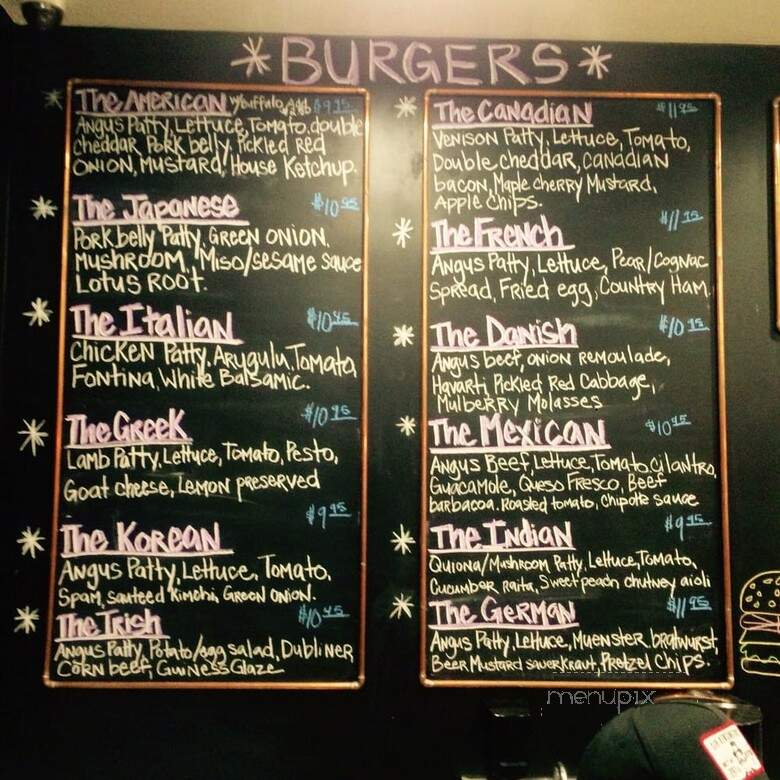 *BURGERS*
* The American w/buffalo Add $9.95
Angus Patty, Lettuce, Tomato, double
cheddar, Pork belly, Pickled Red
Onion, Mustard/House Ketchup.
* The Japanese $10.95
Pork belly Patty, Green Onion,
Mushroom, Miso/sesame sauce
Lotus Root.
* The Italian $10.45
Chicken Patty, Arugulu, Tomato
Fontina, White Balsamic.
* The Greek $10.95
Lamb Patty, Lettuce, Tomato, Pesto,
Goat cheese, Lemon preserved
* The Korean $9.95
Angus Patty, Lettuce, Tomato,
Spam, sauteed Kimchi, Green Onion.
* The Irish $10.45
Angus Patty, Potato/egg salad, Dubliner
Corn beef, Guiness Glaze
* The Canadian $11.95
Venison Patty, Lettuce, Tomato,
Double cheddar, Canadian
bacon, Maple cherry Mustard,
Apple chips.
* The French $11.95
Angus Patty, Lettuce, Pear/Cognac
Spread, Fried egg, Country Ham.
* The Danish $10.95
Angus beef, onion remoulade,
Havarti, Pickled Red Cabbage,
Mulberry Molasses
* The Mexican $10.45
Angus Beef, Lettuce, Tomato, cilantro,
Guacamole, Queso Fresco, Beef
barbacoa, Roasted tomato, chipotle sauce
* The Indian $9.95
Quiona/Mushroom Patty, Lettuce, Tomato,
Cucumber raita, Sweet peach chutney aioli
* The German $11.95
Angus Patty, Lettuce, Muenster, bratwurst,
Beer Mustard sauerkraut, Pretzel Chips.
menupix